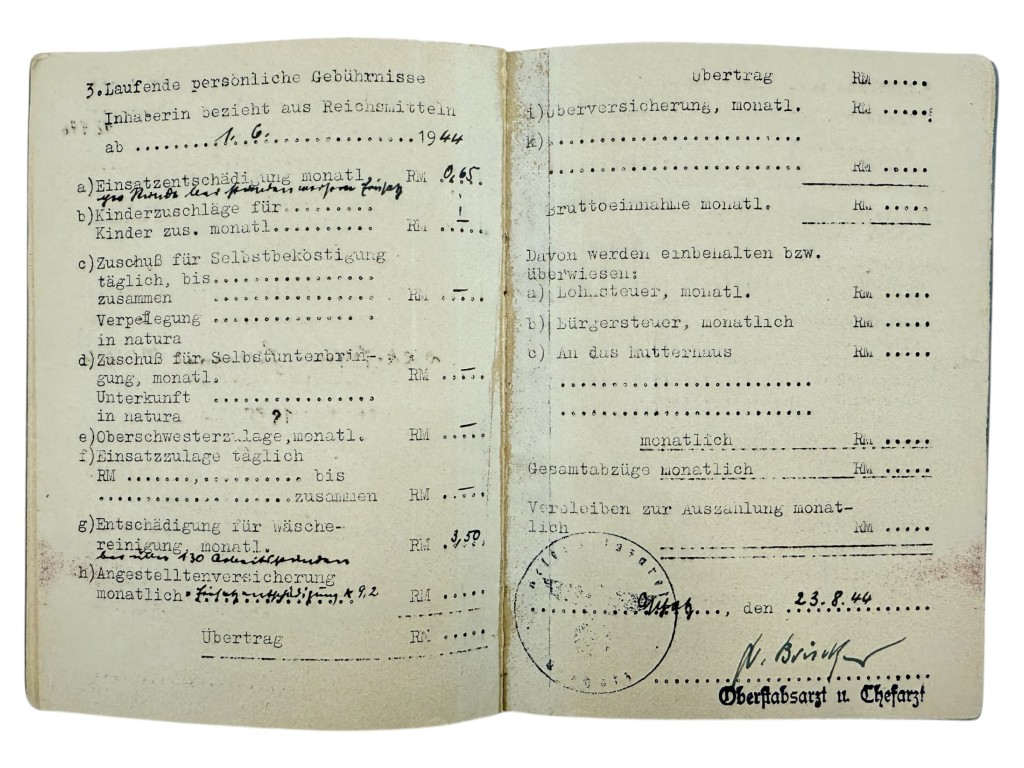 3. Laufende persönliche Gebührnisse
Inhaberin bezieht aus Reichsmitteln
ab .......1. 6.................1944
a) Einsatzentschädigung monatl. RM .0,65.
pro Stunde bei stundenweisem Einsatz
b) Kinderzuschläge für.........
Kinder zus. monatl.......... RM ..–..
c) Zuschuß für Selbstbeköstigung
täglich, bis................
zusammen ................ RM ..–..
Verpflegung ................
in natura
d) Zuschuß für Selbstunterbrin-
gung, monatl. RM ..–..
Unterkunft ................
in natura ?
e) Oberschwesterzulage, monatl. RM ..–..
f) Einsatzzulage täglich
RM .......,......... bis
...................zusammen RM ..–..
g) Entschädigung für Wäsche-
reinigung, monatl. RM .3,50.
bei über 130 Arbeitsstunden
h) Angestelltenversicherung
monatlich = Einsatzentschädigung x 9,2 RM .....
Übertrag RM .....
Übertrag RM .....
i) Überversicherung, monatl. RM .....
k) ......................
...................... RM .....
Bruttoeinnahme monatl. RM .....
Davon werden einbehalten bzw.
überwiesen:
a) Lohnsteuer, monatl. RM .....
b) Bürgersteuer, monatlich RM .....
c) An das Mutterhaus RM .....
......................
......................
monatlich RM .....
Gesamtabzüge monatlich RM .....
Verbleiben zur Auszahlung monat-
lich RM .....
..............., den 23.8.44
Oberstabsarzt u. Chefarzt